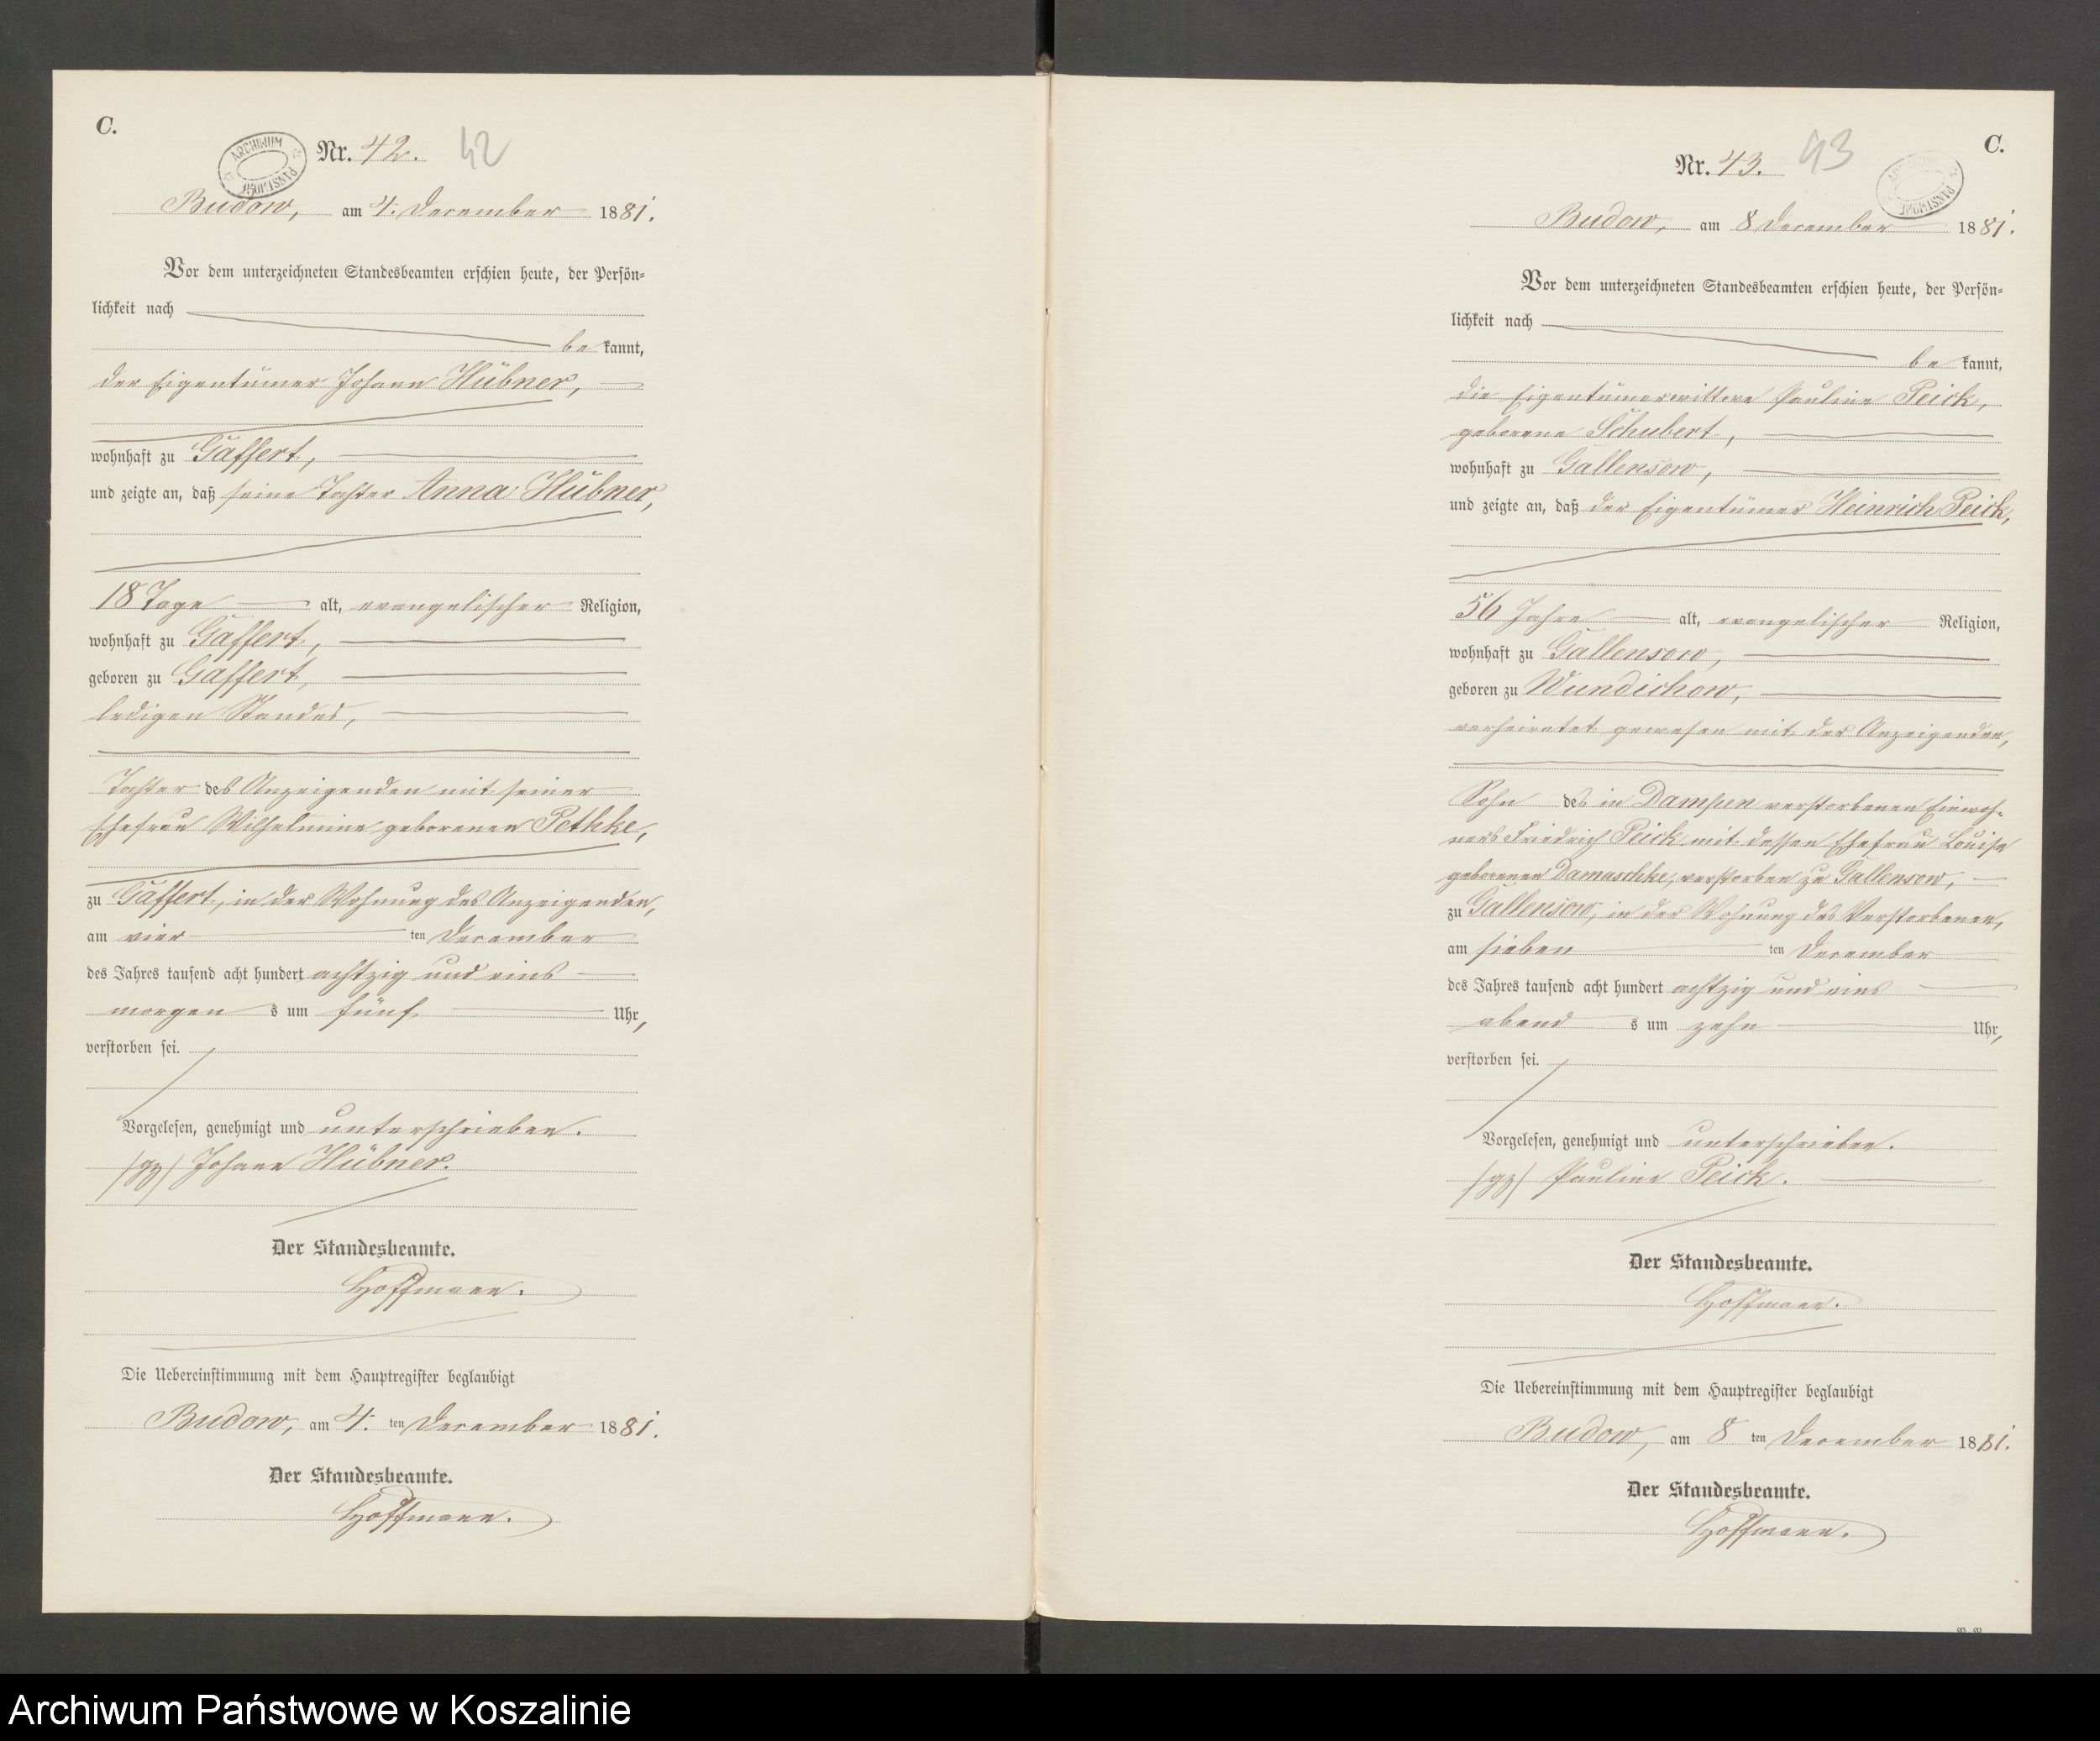 C.
ARCHIWUM PAŃSTWOWE
Nr. 42. 42
Budow, am 4. December 1881.
Vor dem unterzeichneten Standesbeamten erschien heute, der Persön-
lichkeit nach
be kannt,
der Eigentümer Johann Hübner,
wohnhaft zu Gaffert,
und zeigte an, daß seine Tochter Anna Hübner,
18 Tage alt, evangelischer Religion,
wohnhaft zu Gaffert,
geboren zu Gaffert,
ledigen Standes,
Tochter des Anzeigenden mit seiner
Ehefrau Wilhelmine geborenen Pethke,
zu Gaffert, in der Wohnung des Anzeigenden,
am vier ten December
des Jahres tausend acht hundert achtzig und eins
morgen s um fünf Uhr,
verstorben sei.
Vorgelesen, genehmigt und unterschrieben.
/gz/ Johann Hübner.
Der Standesbeamte.
Hoffmann.
Die Uebereinstimmung mit dem Hauptregister beglaubigt
Budow, am 4. ten December 1881.
Der Standesbeamte.
Hoffmann.
C.
ARCHIWUM PAŃSTWOWE
Nr. 43. 43
Budow, am 8 December 1881.
Vor dem unterzeichneten Standesbeamten erschien heute, der Persön-
lichkeit nach
be kannt,
die Eigentümerwittwe Pauline Peick,
geborene Schubert,
wohnhaft zu Gallensow,
und zeigte an, daß der Eigentümer Heinrich Peick,
56 Jahre alt, evangelischer Religion,
wohnhaft zu Gallensow,
geboren zu Wundichow,
verheiratet gewesen mit der Anzeigenden,
Sohn des in Dampen verstorbenen Einwoh-
ners Friedrich Peick mit dessen Ehefrau Louise
geborenen Damaschke, verstorben zu Gallensow,
zu Gallensow, in der Wohnung des Verstorbenen,
am sieben ten December
des Jahres tausend acht hundert achtzig und eins
abend s um zehn Uhr,
verstorben sei.
Vorgelesen, genehmigt und unterschrieben.
/gz/ Pauline Peick.
Der Standesbeamte.
Hoffmann.
Die Uebereinstimmung mit dem Hauptregister beglaubigt
Budow, am 8 ten December 1881.
Der Standesbeamte.
Hoffmann.
Archiwum Państwowe w Koszalinie